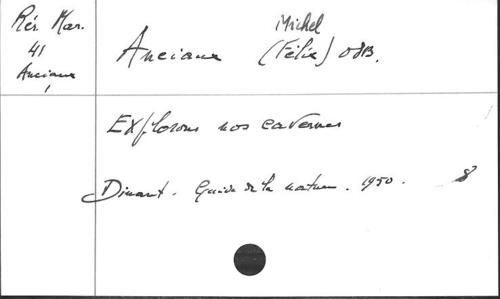 Rés. Mar.
41
Anciaux
Michel
Anciaux (Félix) OSB.
Explorons nos cavernes
Dinant. Guide de la nature. 1950. 8